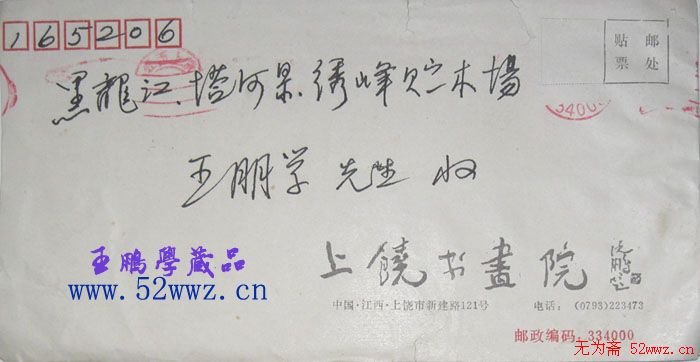 165206
贴邮
票处
黑龍江、塔河県绣峰贮木場
33400
王朋学 先生 收
王鵬學藏品
www.52wwz.cn
上饒书畫院
中国·江西·上饶市新建路121号 电话: (0793)223473
邮政编码.334000
无为斋 52wwz.cn